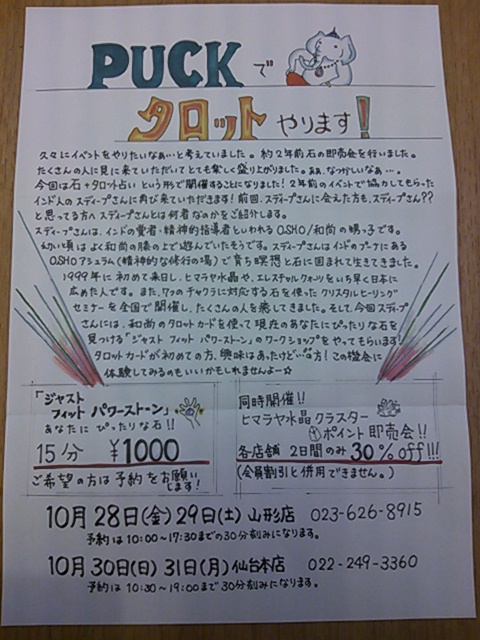 PUCKで
タロットやります!
久々にイベントをやりたいなぁ…と考えていました。約2年前石の即売会を行いました。
たくさんの人に見に来ていただいてとても楽しく盛り上がりました。あぁ、なつかしいなぁ…。
今回は石+タロット占いという形で開催することになりました!2年前のイベントで協力してもらった
インド人のスディープさんに再び来ていただきます!前回、スディープさんに会えた方も、スディープさん??
と思ってる方へスディープさんとは何者なのかをご紹介します。
スディープさんは、インドの賢者・精神的指導者といわれるOSHO/和尚の甥っ子です。
幼い頃はよく和尚の膝の上で遊んでいたそうです。スディープさんはインドのプーナにある
OSHOアシュラム(精神的な修行の場)で育ち瞑想と石に囲まれて生きてきました。
1999年に初めて来日し、ヒマラヤ水晶や、エレスチャルクォーツをいち早く日本に
広めた人です。また、7つのチャクラに対応する石を使ったクリスタルヒーリング
セミナーを全国で開催し、たくさんの人を癒してきました。そして、今回スディープ
さんには、和尚のタロットカードを使って現在のあなたにぴったりな石を
見つける「ジャスト フィット パワーストーン」のワークショップをやってもらいます!
タロットカードが初めての方、興味はあったけど…な方!この機会に
体験してみるのもいいかもしれませんよー☆
「ジャスト
フィット パワーストーン」
あなたにぴったりな石!!
15分 ¥1000
ご希望の方は予約をお願い
します!
同時開催!!
ヒマラヤ水晶クラスター
ポイント即売会!!
各店舗 2日間のみ 30%off!!!
(会員割引と併用できません。)
10月28日(金)29日(土)山形店 023-626-8915
予約は10:00~17:30までの30分刻みになります。
10月30日(日)31日(月)仙台本店 022-249-3360
予約は10:30~19:00まで30分刻みになります。